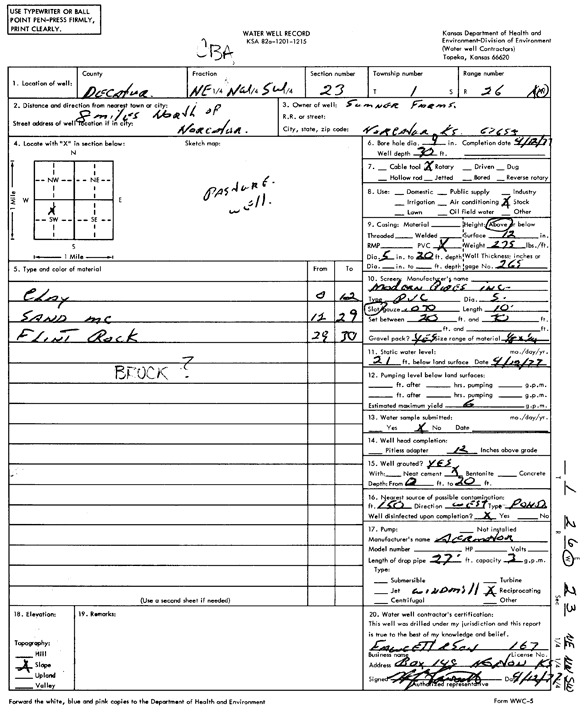 USE TYPEWRITER OR BALL
POINT PEN-PRESS FIRMLY,
PRINT CLEARLY.
WATER WELL RECORD
KSA 82a-1201-1215
Kansas Department of Health and
Environment-Division of Environment
(Water well Contractors)
Topeka, Kansas 66620
CBA
1. Location of well: County Fraction Section number Township number Range number
Decatur NE 1/4 NW 1/4 SW 1/4 23 T 1 S R 26
2. Distance and direction from nearest town or city: 8 miles North of
Street address of well location if in city: Norcatur
3. Owner of well: Sumner Farms.
R.R. or street:
City, state, zip code: Norcatur Ks. 67654
4. Locate with "X" in section below:
Sketch map:
N
NW NE
W E
X
SW SE
S
1 Mile
1 Mile
Pasture
Well.
6. Bore hole dia. 9 in. Completion date 4/12/77
Well depth 30 ft.
7. Cable tool X Rotary Driven Dug
Hollow rod Jetted Bored Reverse rotary
8. Use: Domestic Public supply Industry
Irrigation Air conditioning X Stock
Lawn Oil field water Other
9. Casing: Material Height: Above or below
Threaded Welded Surface 12 in.
RMP PVC X Weight 275 lbs./ft.
Dia. 5 in. to 20 ft. depth Wall Thickness: inches or
Dia. in. to ft. depth gage No. 265
5. Type and color of material From To
Clay 0 12
Sand MC 12 29
Flint Rock 29 30
BROCK ?
10. Screen: Manufacturer's name
Modern Pipes Inc-
Type PVC Dia. 5.
Slot/gauze .030 Length 10'
Set between 20 ft. and 30 ft.
ft. and ft.
Gravel pack? YES Size range of material
11. Static water level: mo./day/yr.
21 ft. below land surface Date 4/12/77
12. Pumping level below land surfaces:
ft. after hrs. pumping g.p.m.
ft. after hrs. pumping g.p.m.
Estimated maximum yield 6 g.p.m.
13. Water sample submitted: mo./day/yr.
Yes X No Date
14. Well head completion:
Pitless adapter 12 Inches above grade
15. Well grouted? YES
With: Neat cement X Bentonite Concrete
Depth: From 0 ft. to 20 ft.
16. Nearest source of possible contamination:
ft. 150 Direction West Type Pond
Well disinfected upon completion? X Yes No
17. Pump: Not installed
Manufacturer's name Aermotor
Model number HP Volts
Length of drop pipe 27' ft. capacity 3 g.p.m.
Type:
Submersible Turbine
Jet Windmill X Reciprocating
Centrifugal Other
(Use a second sheet if needed)
18. Elevation:
19. Remarks:
Topography:
Hill
X Slope
Upland
Valley
20. Water well contractor's certification:
This well was drilled under my jurisdiction and this report
is true to the best of my knowledge and belief.
Fawcett & Son 167
Business name License No.
Address Box 148 Ks
Signed Date 4/12/77
Authorized representative
Forward the white, blue and pink copies to the Department of Health and Environment
Form WWC-5
T 1 R 26 E W Sec 23 1/4 NE 1/4 NW 1/4 SW